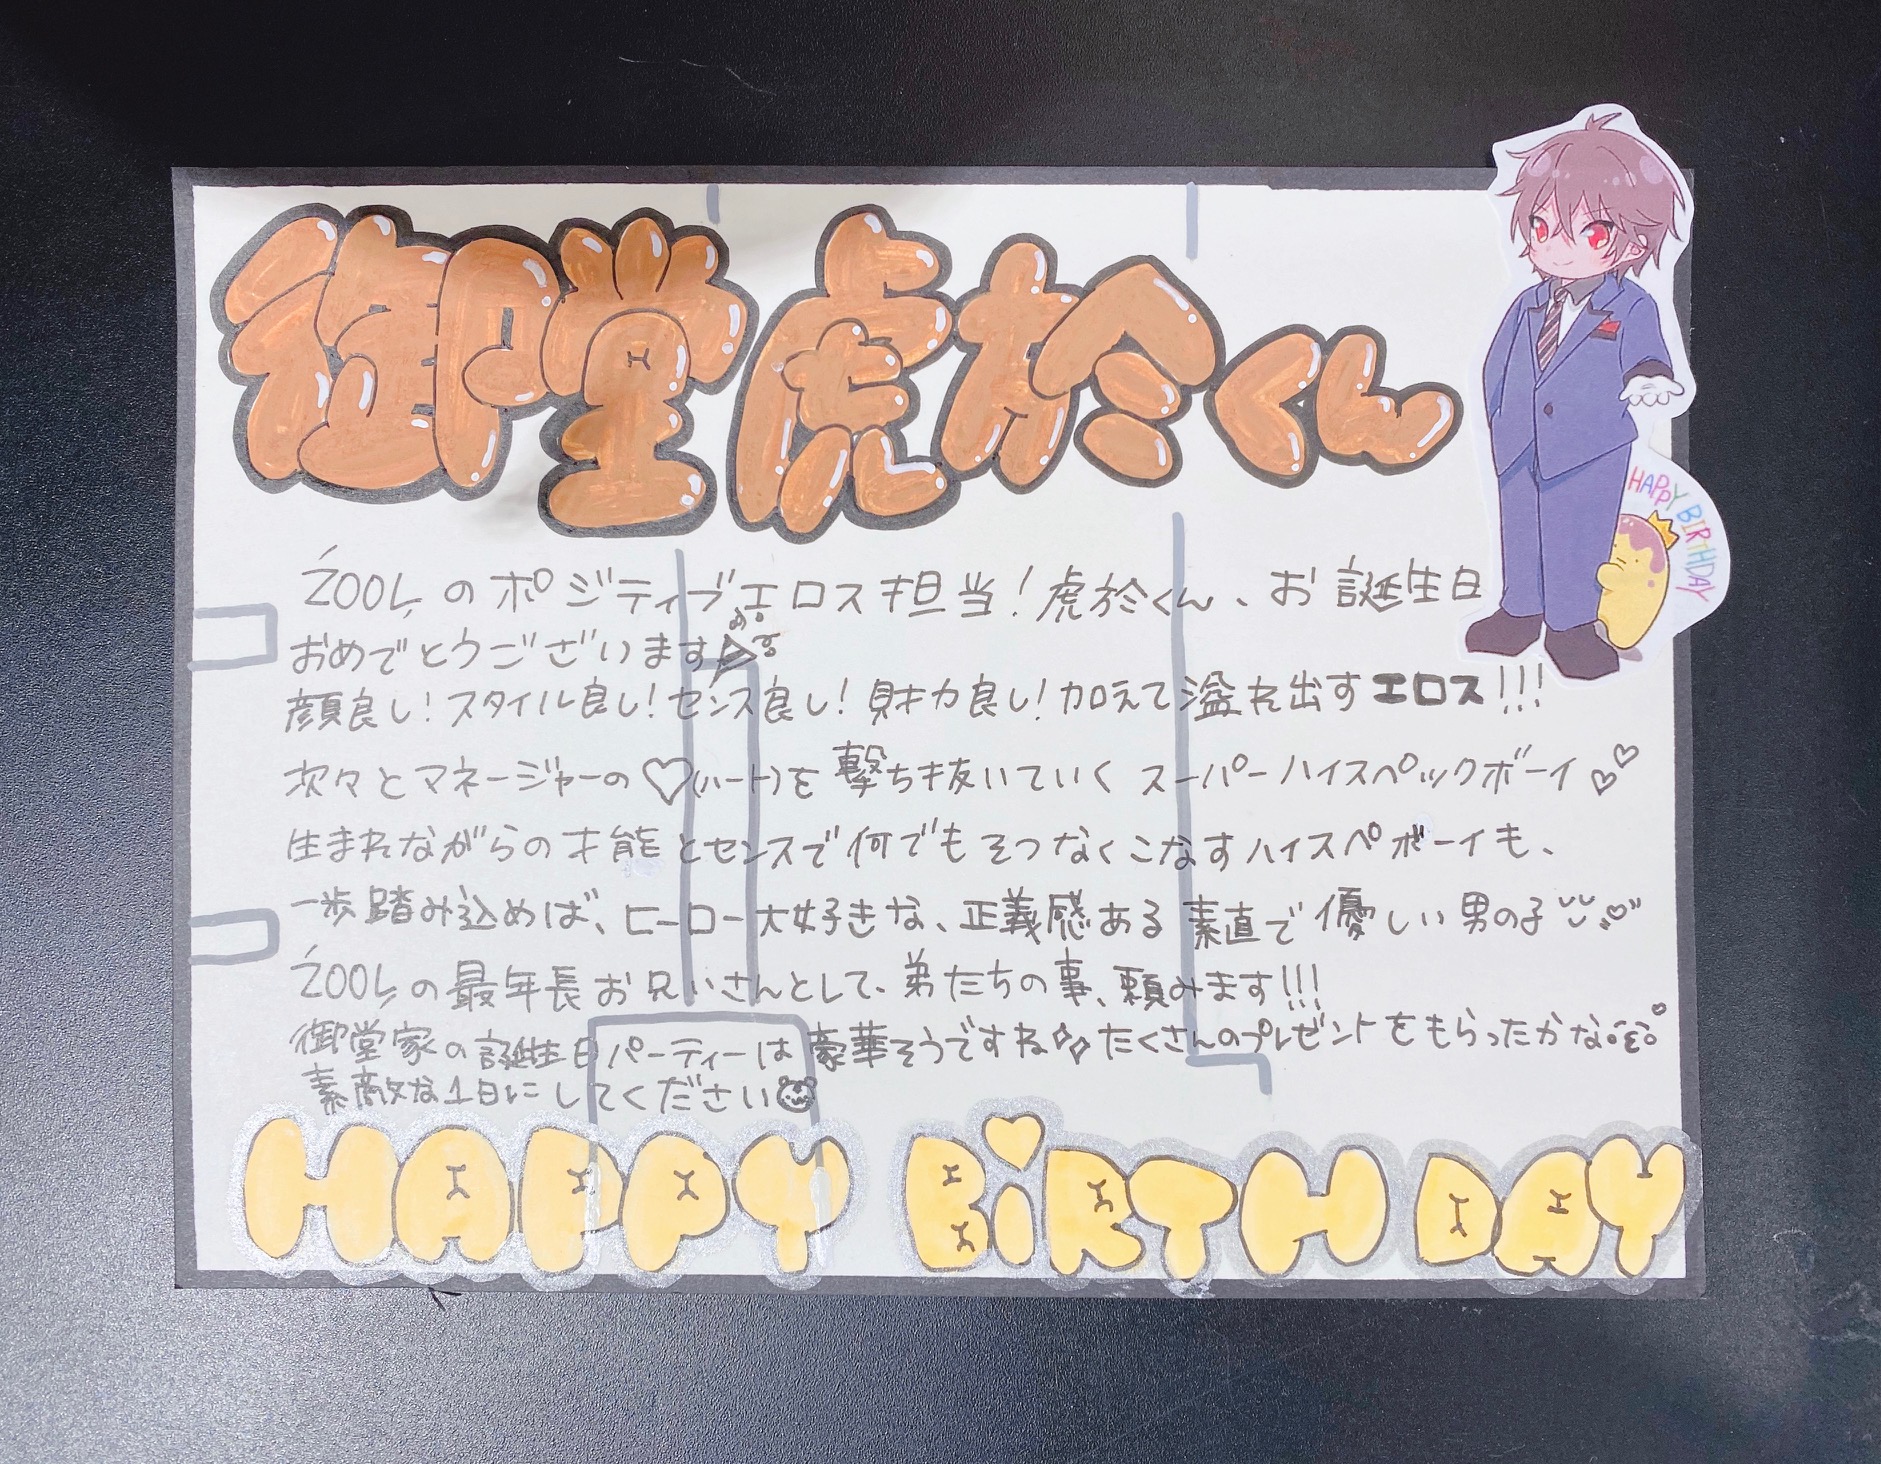 御堂虎於くん
HAPPY BIRTHDAY
ŹOOĻのポジティブエロス担当！虎於くん、お誕生日
おめでとうございます
顔良し！スタイル良し！センス良し！財力良し！加えて溢れ出すエロス!!!
次々とマネージャーの♡(ハート)を撃ち抜いていくスーパーハイスペックボーイ♡♡
生まれながらの才能とセンスで何でもそつなくこなすハイスペボーイも、
一歩踏み込めば、ヒーロー大好きな、正義感ある素直で優しい男の子
ŹOOĻの最年長お兄いさんとして、弟たちの事、頼みます!!!
御堂家の誕生日パーティーは豪華そうですね たくさんのプレゼントをもらったかな
素敵な1日にしてください
HAPPY BiRTHDAY